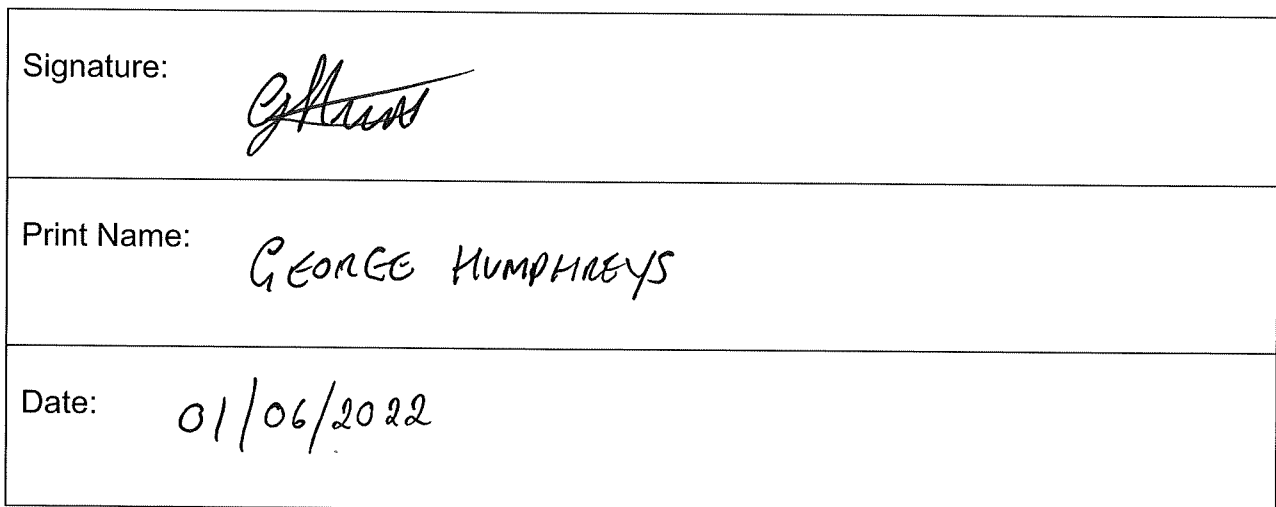 Signature:
Print Name: GEORGE HUMPHREYS
Date: 01/06/2022